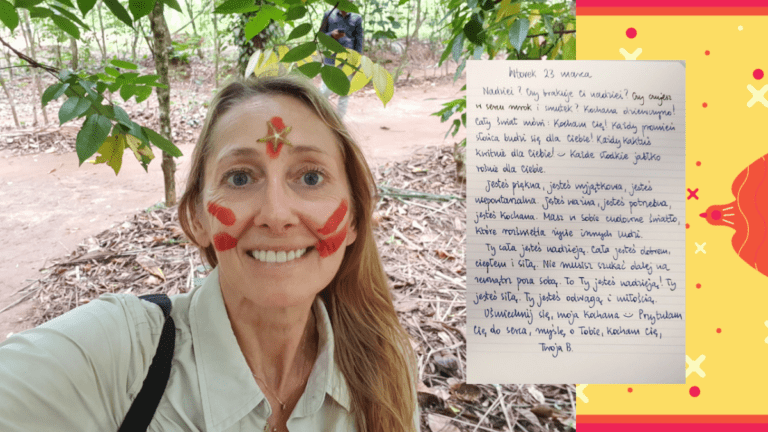 Wtorek 23 marca
Nadziei? Czy brakuje Ci nadziei? Czy czujesz
w sercu mrok i smutek? Kochana dziewczyno!
Cały świat mówi: Kocham Cię! Każdy promień
słońca budzi się dla Ciebie! Każdy kaktus
kwitnie dla Ciebie! Każde słodkie jabłko
rośnie dla Ciebie.
Jesteś piękna, jesteś wyjątkowa, jesteś
niepowtarzalna. Jesteś ważna, jesteś potrzebna,
jesteś kochana. Masz w sobie cudowne światło,
które rozświetla życie innych ludzi.
Ty cała jesteś nadzieją. Cała jesteś dobrem,
ciepłem i siłą. Nie musisz szukać dalej na
zewnątrz poza sobą. To Ty jesteś nadzieją! Ty
jesteś siłą. Ty jesteś odwagą i miłością.
Uśmiechnij się, moja Kochana Przytulam
Cię do serca, myślę o Tobie, kocham Cię,
Twoja B.